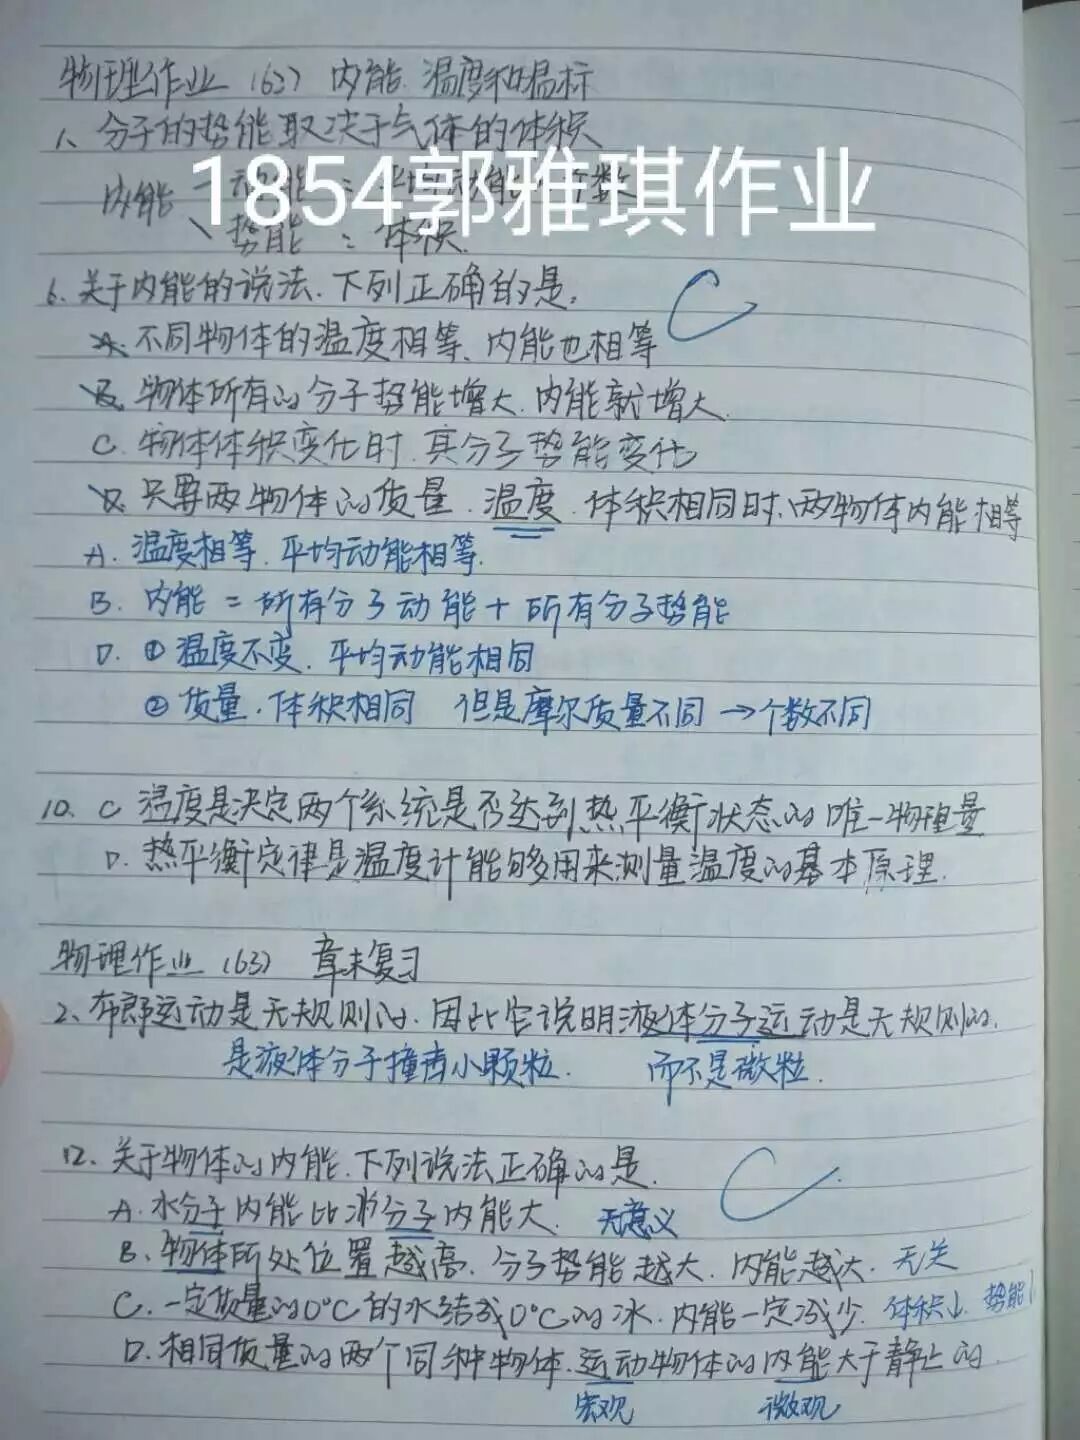 物理作业(63) 内能.温度和温标
1、分子的势能取决于气体的体积
内能 动能:平均动能 个数
1854郭雅琪作业
势能:体积.
6.关于内能的说法.下列正确的是. C
A.不同物体的温度相等、内能也相等
B.物体所有的分子势能增大.内能就增大.
C.物体体积变化时.其分子势能变化
D.只要两物体的质量.温度.体积相同时.两物体内能相等
A.温度相等.平均动能相等.
B.内能=所有分子动能+所有分子势能
D.①温度不变.平均动能相同
②质量.体积相同 但是摩尔质量不同→个数不同
10. C 温度是决定两个系统是否达到热平衡状态的唯一物理量
D.热平衡定律是温度计能够用来测量温度的基本原理.
物理作业(63) 章末复习
2、布郎运动是无规则的.因此它说明液体分子运动是无规则的.
是液体分子撞击小颗粒. 而不是微粒.
12、关于物体的内能.下列说法正确的是. C
A.水分子内能比冰分子内能大. 无意义
B.物体所处位置越高.分子势能越大.内能越大. 无关
C.一定质量的0°C的水结成0°C的冰.内能一定减少. 体积↓.势能↓
D.相同质量的两个同种物体.运动物体的内能大于静止的.
宏观 微观